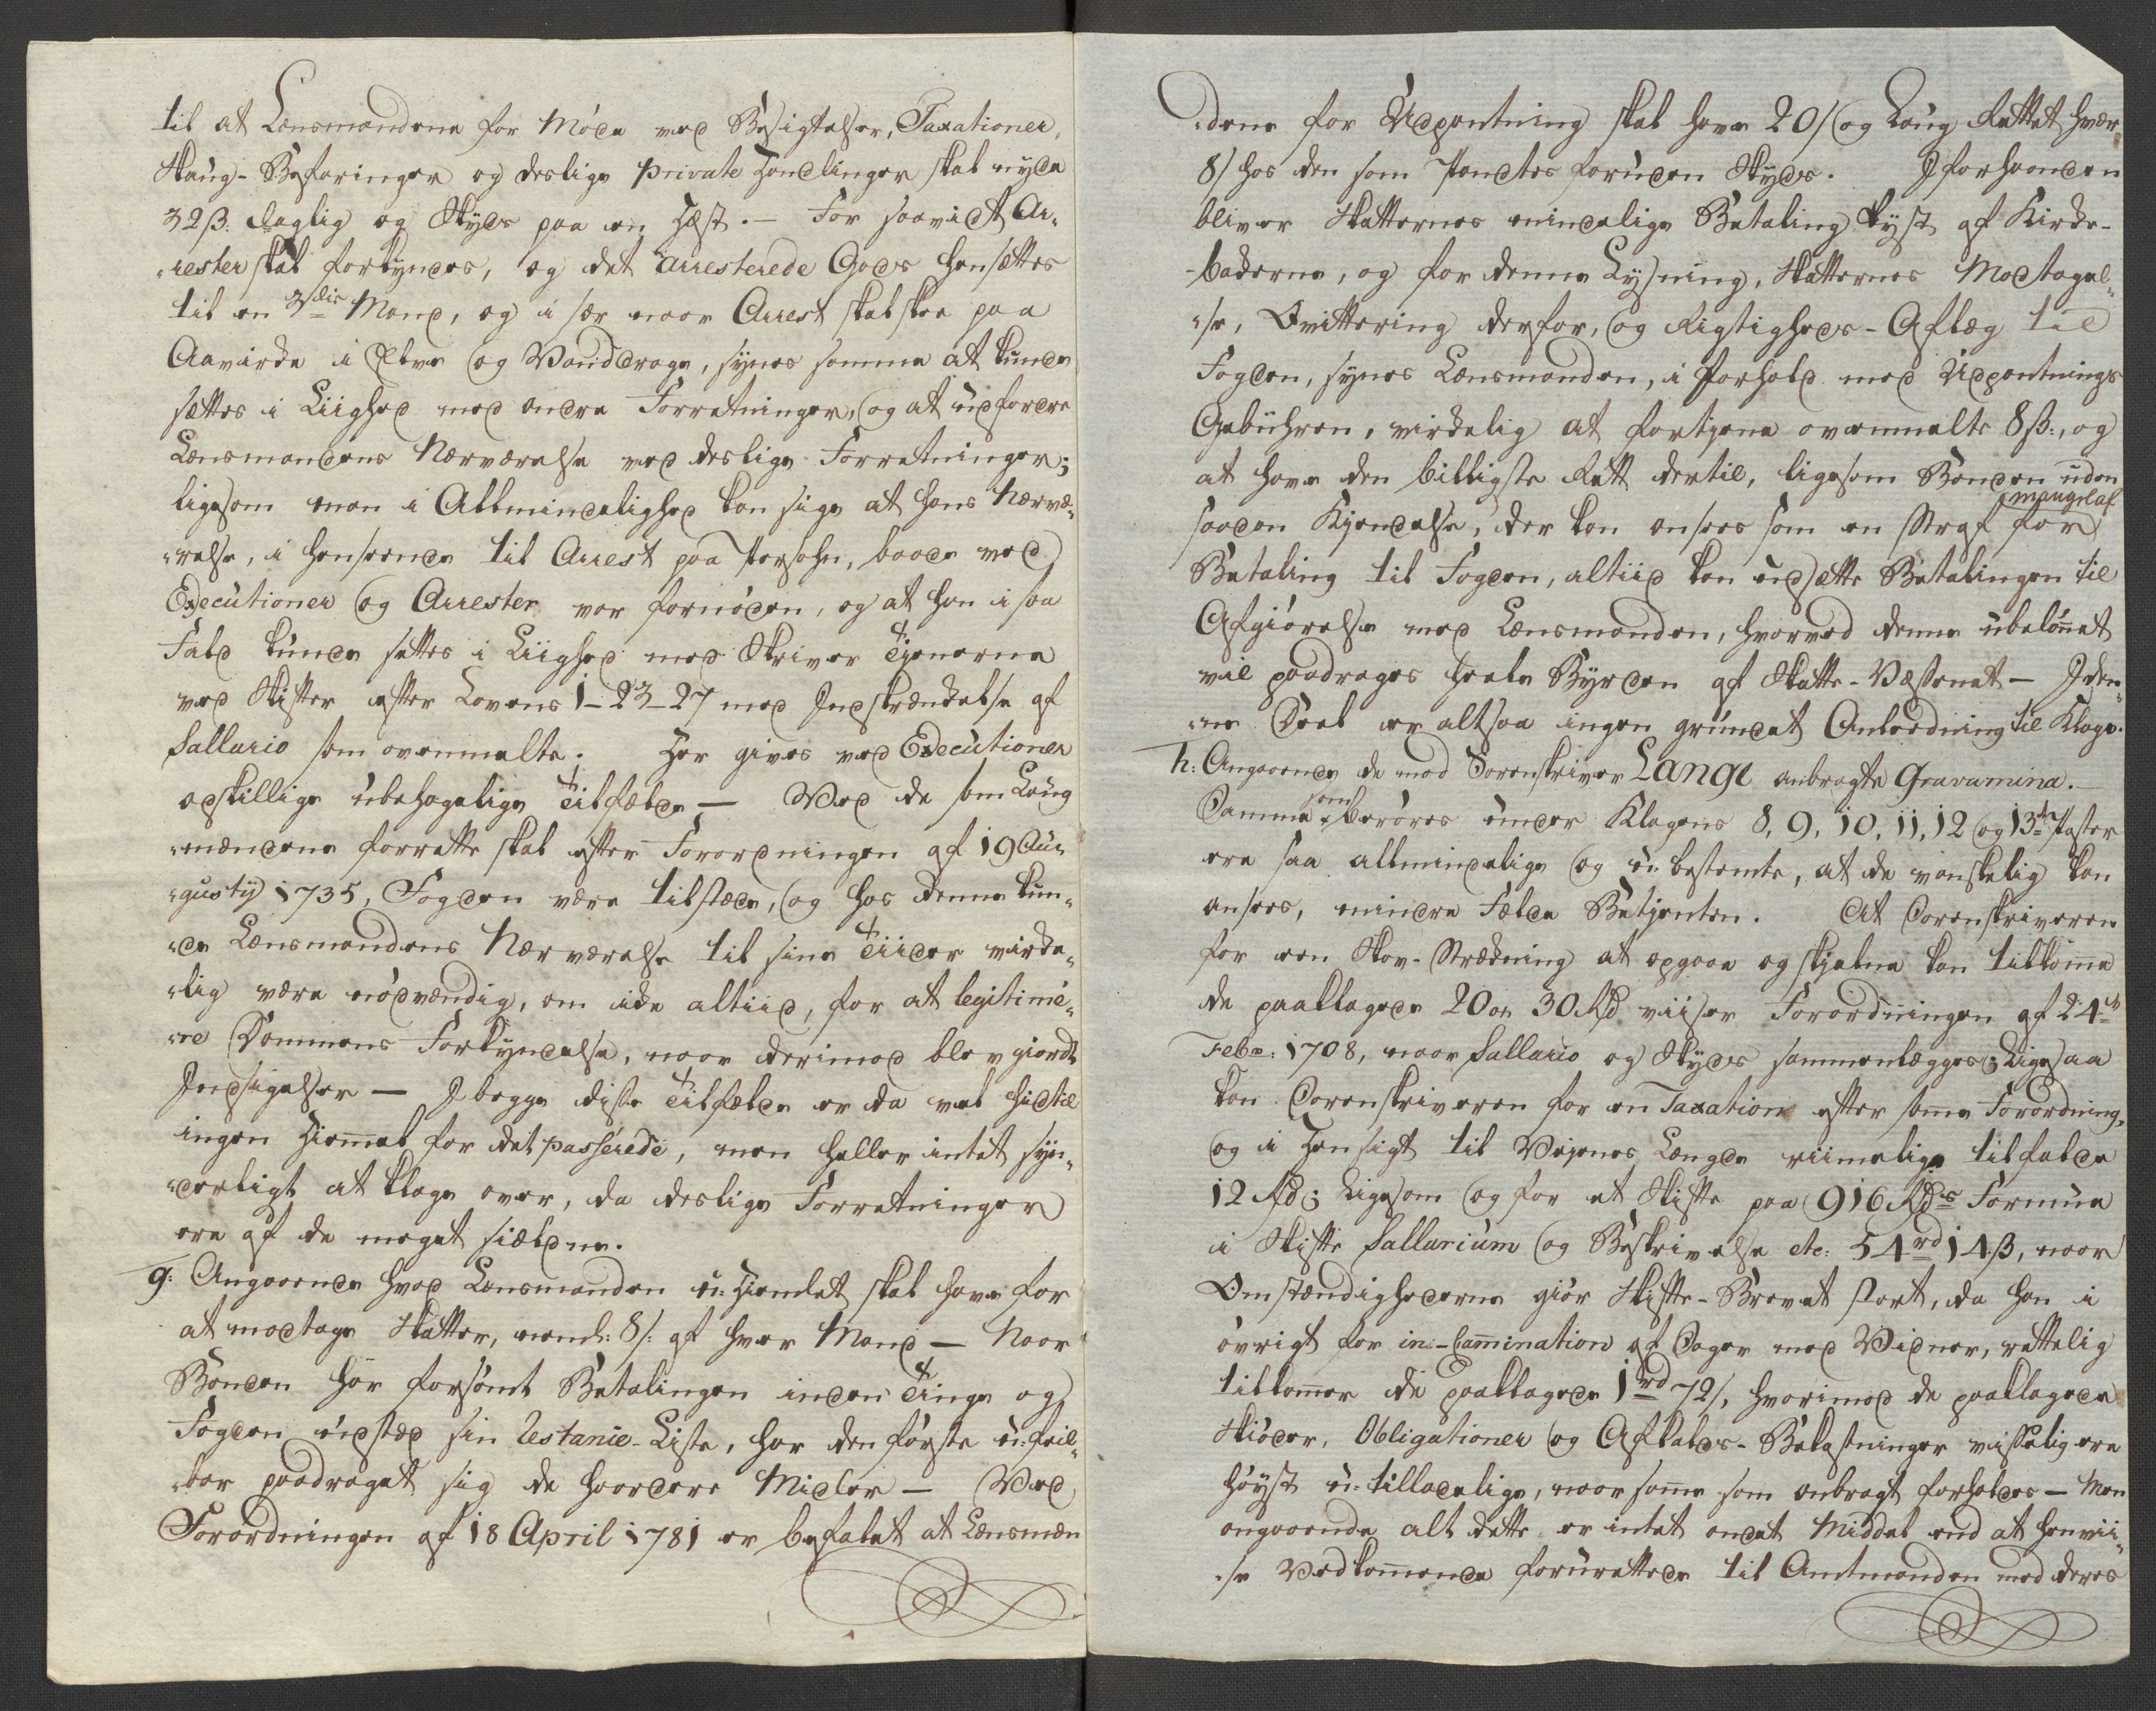 til at Lænsmændene for Møde ved Besigtelser, Taxationer,
Skaug-Befaringer og deslige private Handlinger skal nyde
32 ß: daglig og Skyds paa en Hest. — For saavidt Ar-
rester skal forkyndes, og det arresterede Gods hensættes
til en 3die Mand, og i sær naar Arrest skal skee paa
Qavirke i Elve og Vanddrage, synes samme at kunde
sættes i Liighed med andre Forretninger, og at udfordre
Lænsmandens Nærværelse ved deslige Forretninger;
ligesom man i Allmindelighed kan sige at hans Nærvæ-
relse, i henseende til Arrest paa Persohn, baade ved
Executioner og Arrester var fornøden, og at han i saa
Fald kunde settes i Liighed med Skriver Tjenerne
ved Skifter efter Lovens 1-23-27 med Indskrænkelse af
Sallario som ovenmelte. Her gives ved Executioner
adskillige ubehagelige Tilfælde — Ved de som Laug
mændene forrette skal efter Forordningen af 19 Au-
gusty 1735, Fogden være tilstæde, og hos denne kun-
de Lænsmandens Nærværelse til sine Tiider virke-
lig være nødvændig, om ikke altiid, for at legitime-
re Dommens Forkyndelse, naar derimod blev giordt
Indsigelser — I begge disse Tilfælde er da vel hidtil
ingen Hiemmel for det passerede, men heller intet syn-
derligt at klage over, da deslige Forretninger
ere af de meget siældne.
g: Angaaende hvad Lænsmanden u-hiemlet skal have for
at modtage Skatter, neml: 8 ß: af hver Mand — Naar
Bonden har forsømt Betalingen inden Tinge og
Fogden udstæd sin Restanie-Liste, har den første u-feil-
bar paadraget sig de haardere Midler — Ved
Forordningen af 18 April 1781 er befalet at Lænsmæn
dene for Udpantning skal have 20 ß og Laug Rettet hver
8 ß hos den som Pandtes foruden Skyds. I forhaanden
bliver Skatternes mindelige Betaling lyst af Kirke-
bakkerne, og for denne Lysning, Skatternes Modtagel-
se, Qvittering derfor, og Rigtigheds-Aflæg til
Fogden, synes Lænsmanden, i forhold med Udpantnings
Gebuhren, virkelig at fortjene ovenmelte 8 ß:, og
at have den billigste Rett dertil, ligesom Bonden uden
saadan Kjendelse, der kan ansees som en Straf for mangel af
Betaling til Fogden, altiid kan udsætte Betalingen til
Afgiørelse med Lænsmanden, hvorved denne ubelønnet
vil paadrages heele Byrden af Skatte-Væsenet — I den-
ne Deel er altsaa ingen grundet Anledning til Klage.
h: Angaaende de mod Sorenskriver Lange anbragte Gravamina.
Samme som berøres under Klagens 8, 9, 10, 11, 12 og 13de Poster
ere saa allmindelige og u-bestemte, at de vanskelig kan
ansees, mindre fælde Betjenten. At Sorenskriveren
for een Skov-Strækning at opgaae og skjelne kan tilkomme
de paaklagede 20 on 30 Rd viiser Forordningen af 24de
Febr: 1708, naar Sallario og Skyds sammenlægges; Ligesaa
kan Sorenskriveren for en Taxation efter samme Forordning,
og i Hensigt til Vejenes Længde riimelige tilfalde
12 Rd; Ligesom og for et Skifte paa 916 Rds Formue
i Skifte Sallarium og Beskrivelse etc: 54 rd 14 ß, naar
Omstændighederne giør Skifte-Brevet stort, da han i
øvrigt for in-Camination af Sager med Vidner, rettelig
tilkommer de paaklagede 1 rd 72 ß, hvorimod de paaklagede
Skiøder, Obligationer og Afkalds-Bekostninger visselig ere
høyst u-tilladelige, naar samme som anbragt forholdes — Men
angaaende alt dette er intet andet Middel end at henvii-
se Vedkommende forurettede til Amtmanden med deres